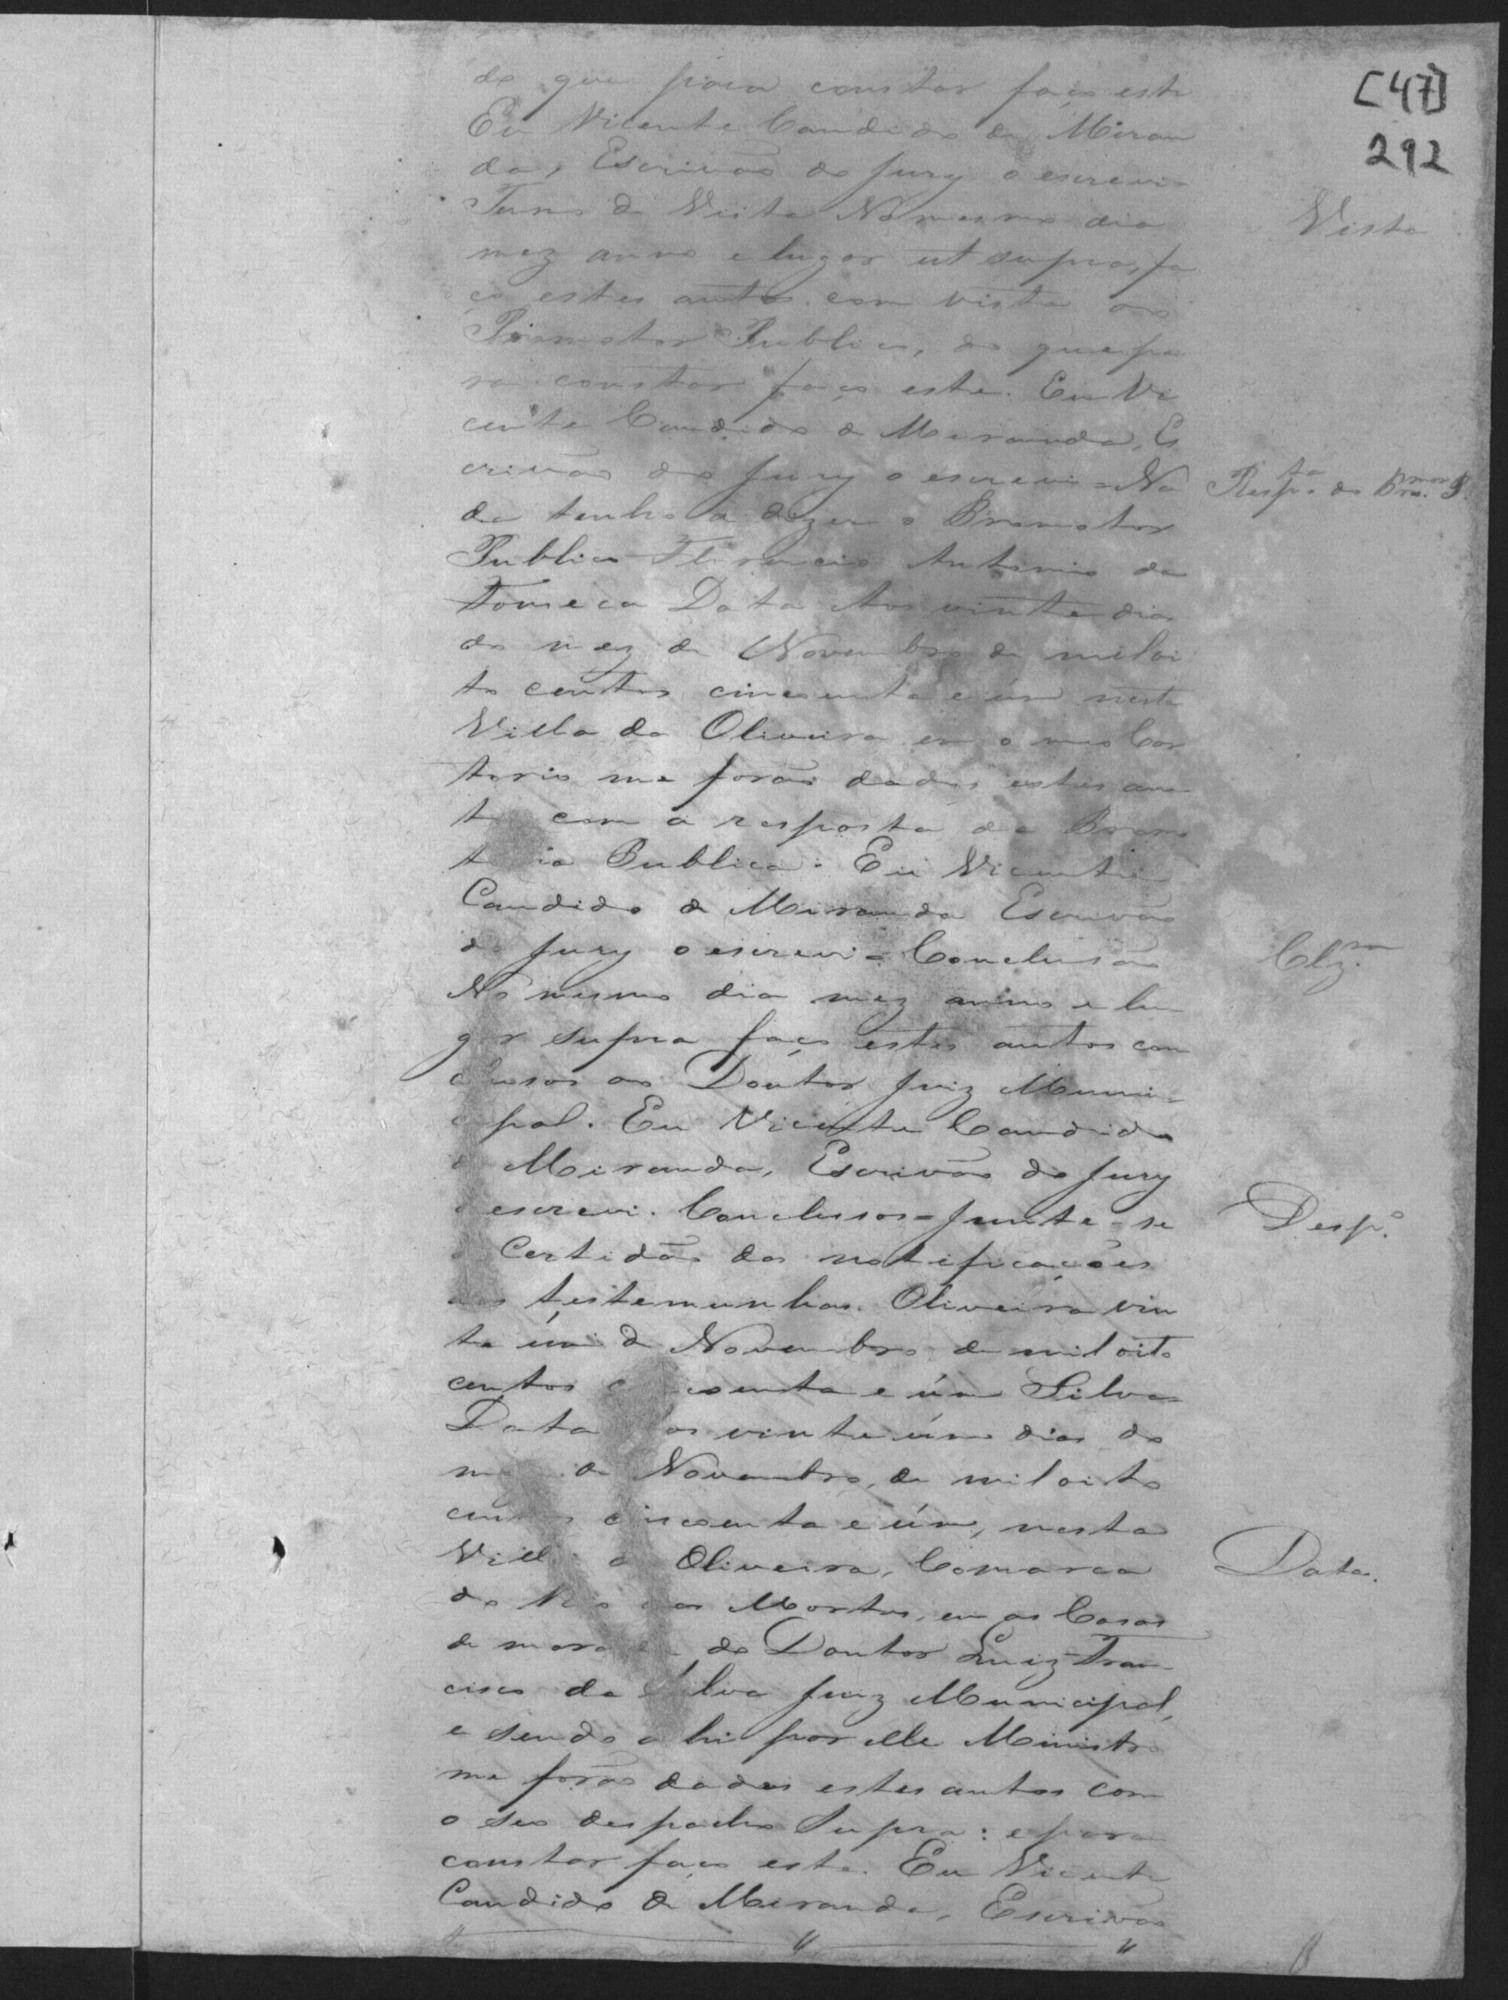 [47]
292
do que para constar faço este
Eu Vicente Candido de Miran
da, Escrivão do Jury o escrevi
Termo de Vista No mesmo dia
Vista
mez anno e lugar ut supra, fa
ço estes autos com vista ao
Promotor Publico, do que pa
ra constar faço este. Eu Vi
cente Candido de Miranda, Es
crivão do Jury o escrevi = Na
Resp.ta do Pro.mor P.
da tenho a dizer o Promotor
Publico Florencio Antonio da
Fonseca Data Aos vinte dias
do mez de Novembro de mil oi
to centos cincoenta e úm nesta
Villa da Oliveira em o meo Car
torio me forão dados estes au
t com a resposta da Promo
t ia Publica: Eu Vicente
Candido de Miranda Escrivão
do Jury o escrevi = Conclusão
Clz.am
No mesmo dia mez anno e lu
g r supra faço estes autos con
clusos ao Doutor Juiz Muni-
cipal. Eu Vicente Candido
d Miranda, Escrivão do Jury
o escrevi. Conclusos = Junte-se
Desp.o
a Certidão das notificações
das testemunhas. Oliveira vin
te úm de Novembro de mil oito
centos c coenta e úm Silva =
Data os vinte úm dias do
m de Novembro, de mil oito
cen s cincoenta e úm, nesta
Vill d Oliveira, Comarca
Data.
do Rio das Mortes, em as Casas
de mora da do Doutor Luiz Fran
cisco da Silva Juiz Municipal,
e sendo ahi por elle Ministro
me forão dados estes autos com
o seo despacho Supra: e para
constar faço este. Eu Vicente
Candido de Miranda, Escrivão